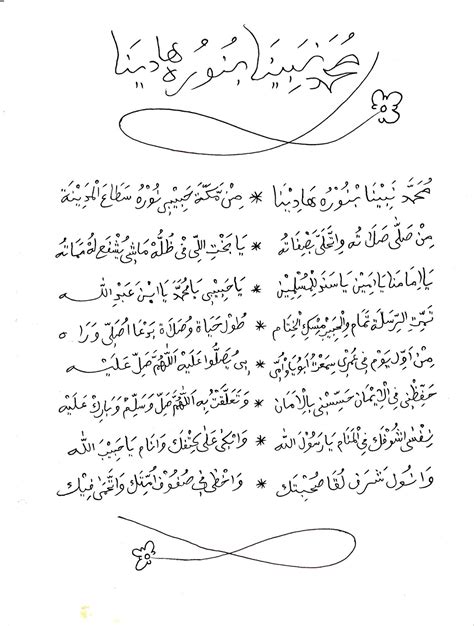 مُحَمَّد نَبِينَا بِنُورُه هَادِينَا
مُحَمَّد نَبِيْنَا بْنُوْرُه هَادِيْنَا * مِنْ مَكَّة حَبِيْبِي نُوْرُه سَطَاعَ الْمَدِيْنَة
مِنْ صَلَّى صَلَاتُه وَاتْحَلَّى بَصِفَاتُه * يَا بَخْتِ اللِّي فِي ظُلُّه مَاشِي يُشْفَع لُه مَمَاتُه
يَا اِمَامنَا يَا اَمِيْن يَا سَنَد الْمُسْلِمِيْن * يَا حَبِيْبِي يَا مُحَمَّد يَا ابْن عَبْدِ الله
تَمِّتِ الرِّسَلَة تَمَام وَالْحَبِيْب مِسْكِ الْخِتَام * طُول حَيَاة وُصَلَاة بَدْعَا اُصَلِّي وَرَاه
مِنْ اَوِّل يَوْم فِي عُمْرِي سَمَعْتُ اَبُويَا وْاُمِّي * بِي يُصَلُّوا عَلَيْه اَللّٰهُمَّ صَلِّ عَلَيْه
حَفَّظْنِي فِي الْاِيْمَان حَسِّسْنِي بِالْاَمَان * وَتَعَلَّقْتُ بِه اَللّٰهُمَّ صَلِّ وَسَلِّمْ وَبَارِك عَلَيْه
نِفْسِي اَشُوْفَك فِي الْمَنَام يَا رَسُوْل الله * وَابْكِي عَلَى كِتْفِك وَانَام يَا حَبِيْبَ الله
وَانُول شَرَف لُقَا صُحْبِتَك * وَاخْطَى فِي صُفُوْف اُمِّتَك وَاتْحَمَى فِيْك